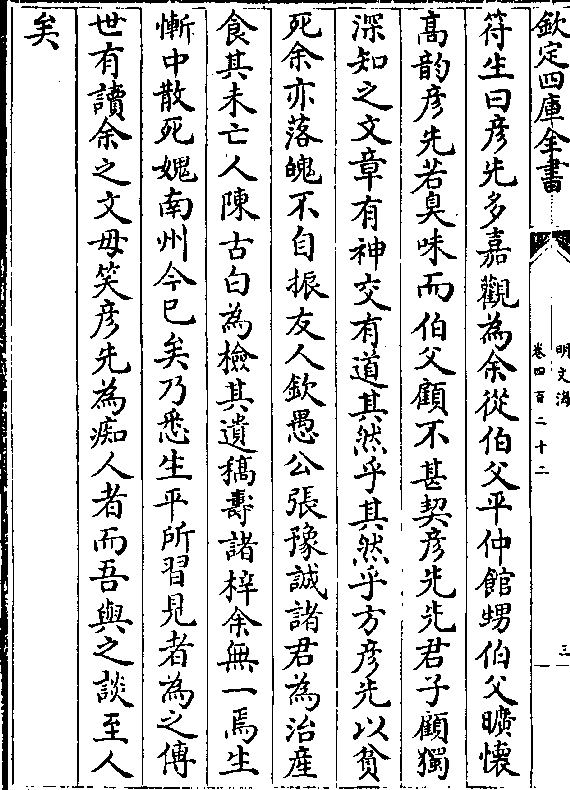 欽定四庫全書
明文海
卷四百二十二
三
符生曰彦先多嘉觀為余從伯父平仲館甥伯父曠懷
髙韵彦先若臭味而伯父顧不甚契彦先先君子顧獨
深知之文章有神交有道其然乎其然乎方彦先以貧
死余亦落魄不自振友人欽愚公張豫誠諸君為治產
食其未亡人陳古白為檢其遺稿壽諸梓余無一焉生
慚中散死媿南州今已矣乃悉生平所習見者為之傳
世有讀余之文毋笑彦先為痴人者而吾與之談至人
矣